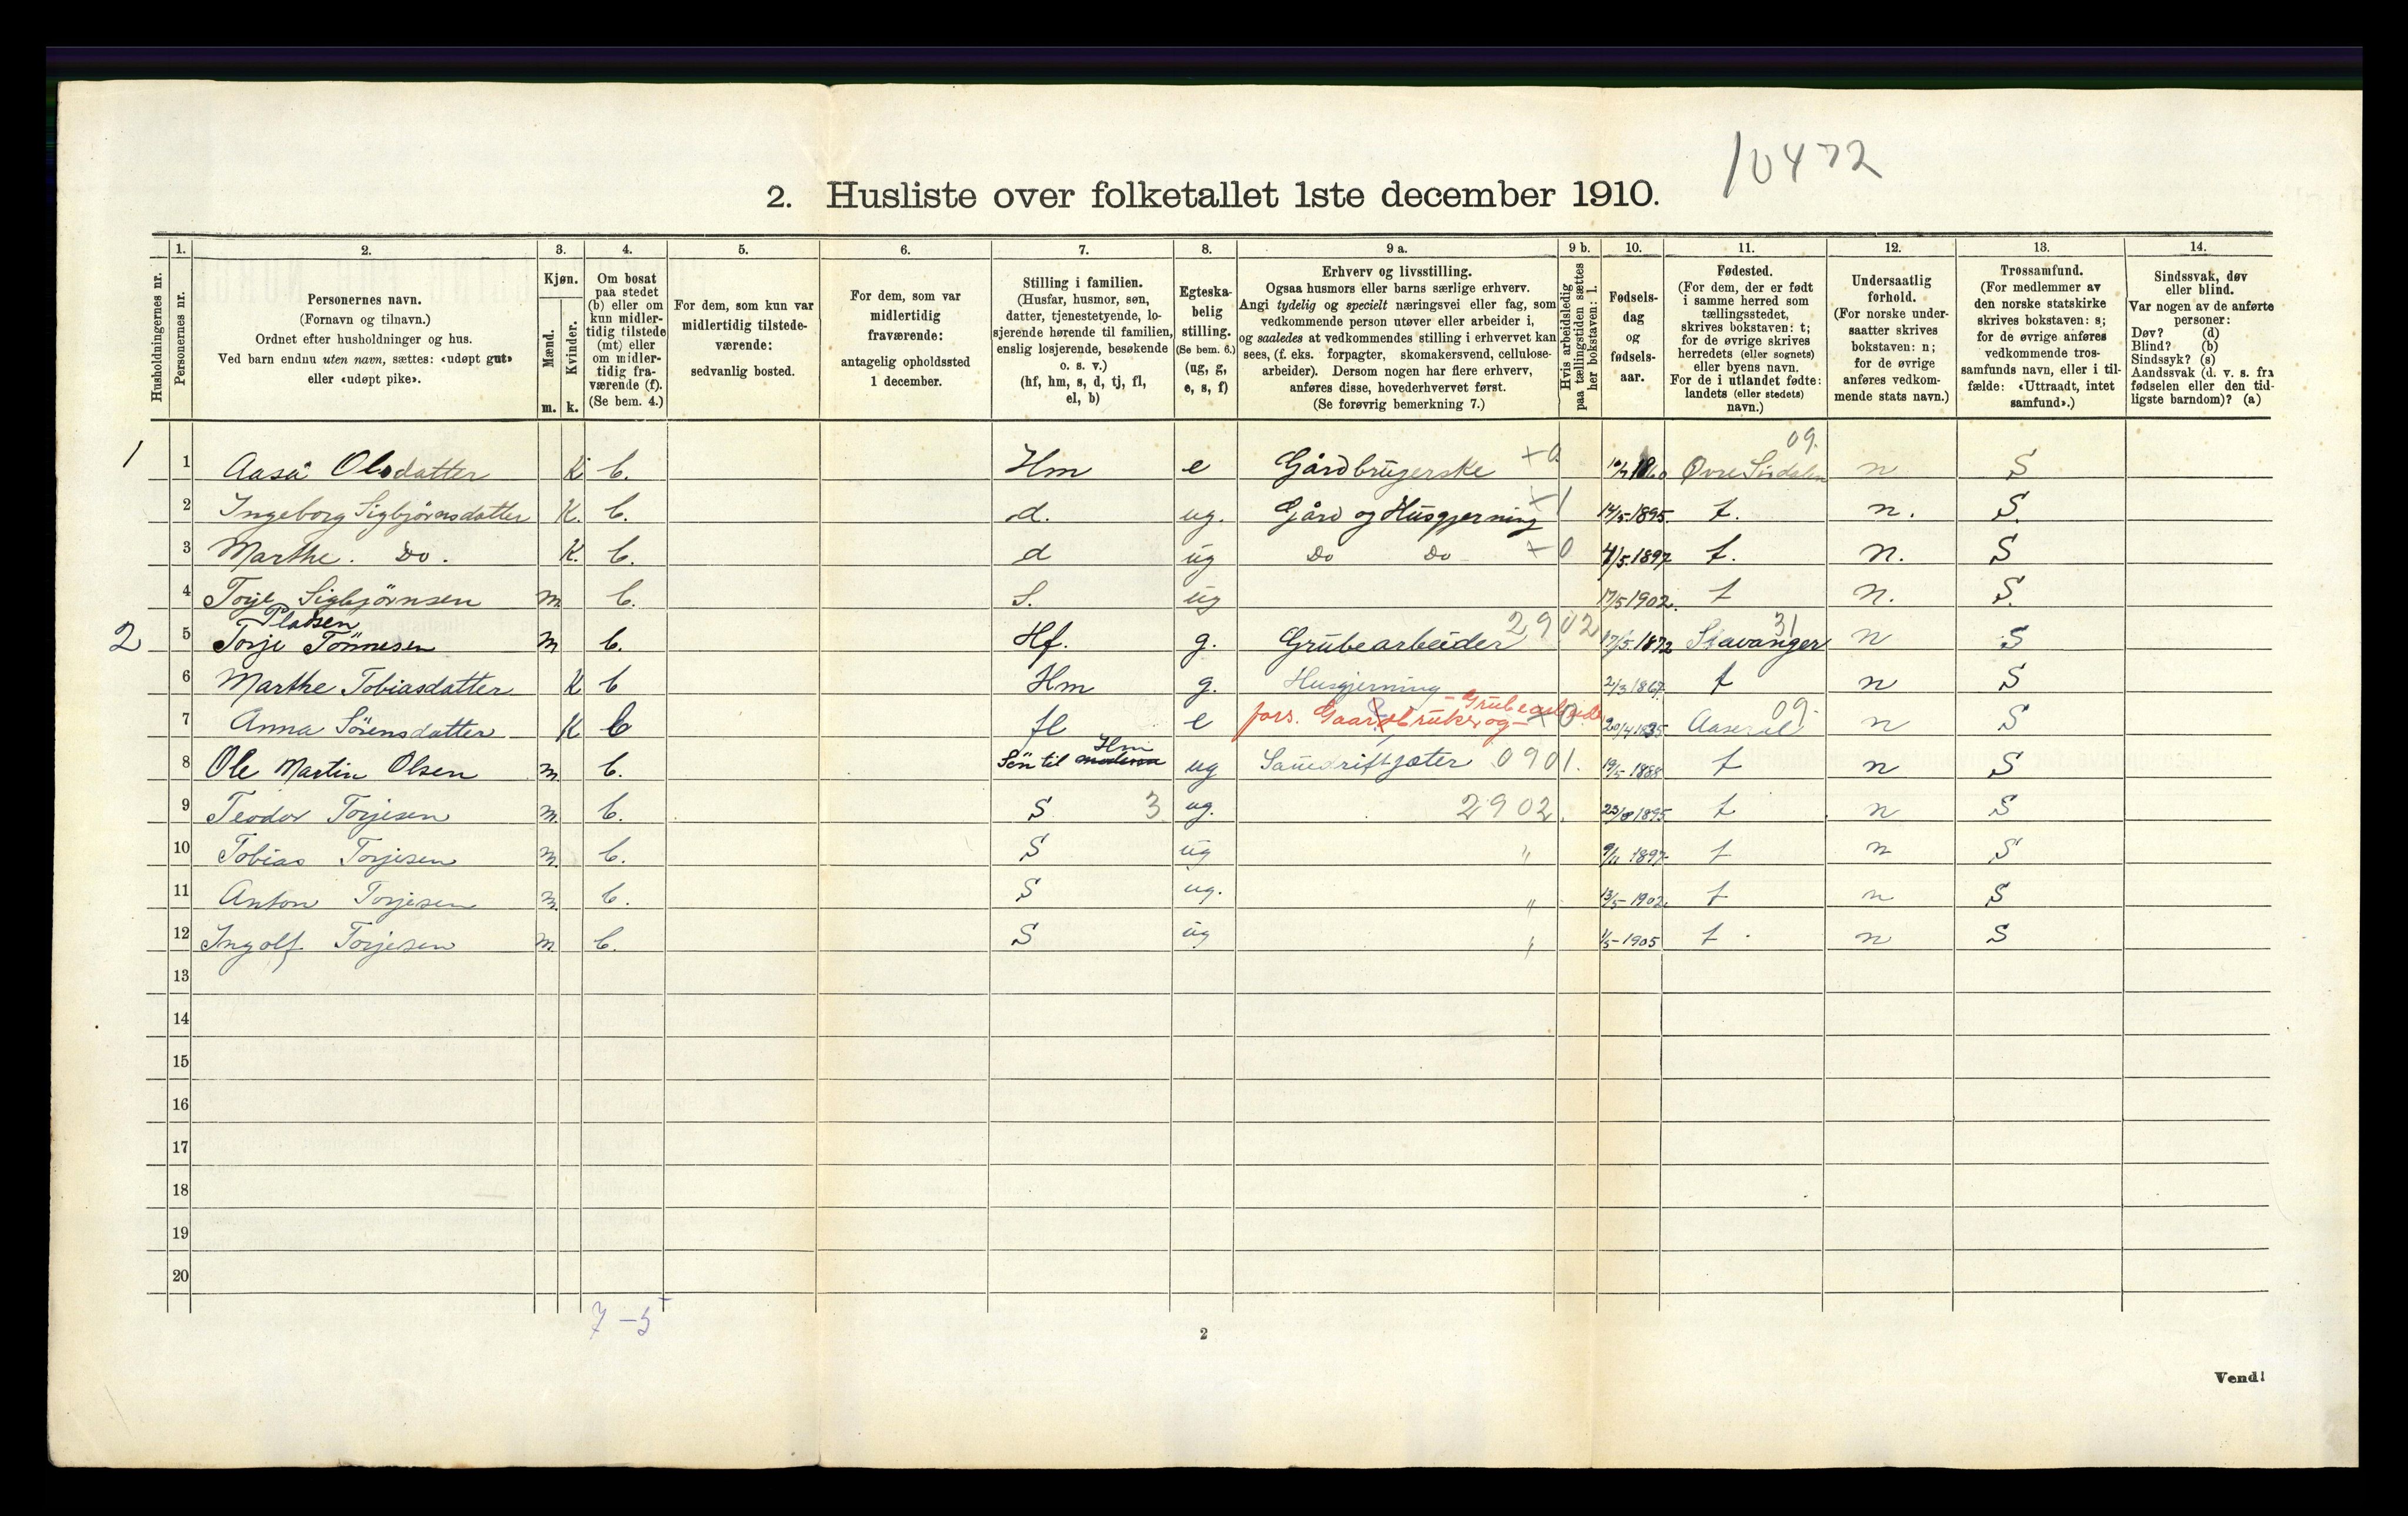 10472
2. Husliste over folketallet 1ste december 1910.
Husholdningernes nr.
1. Personernes nr.
2. Personernes navn. (Fornavn og tilnavn.) Ordnet efter husholdninger og hus. Ved barn endnu uten navn, sættes: «udøpt gut» eller «udøpt pike».
3. Kjøn. Mænd. m. Kvinder. k.
4. Om bosat paa stedet (b) eller om kun midlertidig tilstede (mt) eller om midlertidig fraværende (f). (Se bem. 4.)
5. For dem, som kun var midlertidig tilstedeværende: sedvanlig bosted.
6. For dem, som var midlertidig fraværende: antagelig opholdssted 1 december.
7. Stilling i familien. (Husfar, husmor, søn, datter, tjenestetyende, losjerende hørende til familien, enslig losjerende, besøkende o. s. v.) (hf, hm, s, d, tj, fl, el, b)
8. Egteskabelig stilling. (Se bem. 6.) (ug, g, e, s, f)
9 a. Erhverv og livsstilling. Ogsaa husmors eller barns særlige erhverv. Angi tydelig og specielt næringsvei eller fag, som vedkommende person utøver eller arbeider i, og saaledes at vedkommendes stilling i erhvervet kan sees, (f. eks. forpagter, skomakersvend, cellulosearbeider). Dersom nogen har flere erhverv, anføres disse, hovederhvervet først. (Se forøvrig bemerkning 7.)
9 b. Hvis arbeidsledig paa tællingstiden sættes her bokstaven: l.
10. Fødselsdag og fødselsaar.
11. Fødested. (For dem, der er født i samme herred som tællingsstedet, skrives bokstaven: t; for de øvrige skrives herredets (eller sognets) eller byens navn. For de i utlandet fødte: landets (eller stedets) navn.)
12. Undersaatlig forhold. (For norske undersaatter skrives bokstaven: n; for de øvrige anføres vedkommende stats navn.)
13. Trossamfund. (For medlemmer av den norske statskirke skrives bokstaven: s; for de øvrige anføres vedkommende trossamfunds navn, eller i tilfælde: «Uttraadt, intet samfund».)
14. Sindssvak, døv eller blind. Var nogen av de anførte personer: Døv? (d) Blind? (b) Sindssyk? (s) Aandssvak (d. v. s. fra fødselen eller den tidligste barndom)? (a)
1 1 Aasa Olsdatter K b. Hm e Gårdbrugerske +0 1860 Øvre Sirdalen 09. n S
2 Ingeborg Sigbjørnsdatter K. b. d. ug. Gård og Husgjerning +1 14/5 1895. t. n. S.
3 Marthe. Do. K. b. d ug Do Do +0 4/5.1897 t. n. S
4 Torje Sigbjørnsen m. b. S. ug 17/5 1902. t n. S.
Pladsen
2 5 Torje Tönnesen m b. Hf. g. Grubearbeider 2902 17/5.1872 Stavanger 31 n S
6 Marthe Tobiasdatter K b Hm g. Husgjerning 2/3 1867. t n S
7 Anna Sörensdatter K b fl e fors. Gaardbruker og - Grubearbeider +0 20/4 1835 Aaseral 09. n S
8 Ole Martin Olsen m. b. Sön til Hm ug Sauedriftgjæter 0901. 19/5-1888 t n S
9 Teodor Torjesen m. b. S 3 ug. 2902 23/8 1895 t n S
10 Tobias Torjesen m. b. S ug " 9/11 1897 t n S
11 Anton Torjesen m. b. S ug. " 13/5-1902. t n S
12 Ingolf Torjesen m. b. S ug " 1/5-1905 t. n S
13
14
15
16
17
18
19
20
7-5
2
Vend!